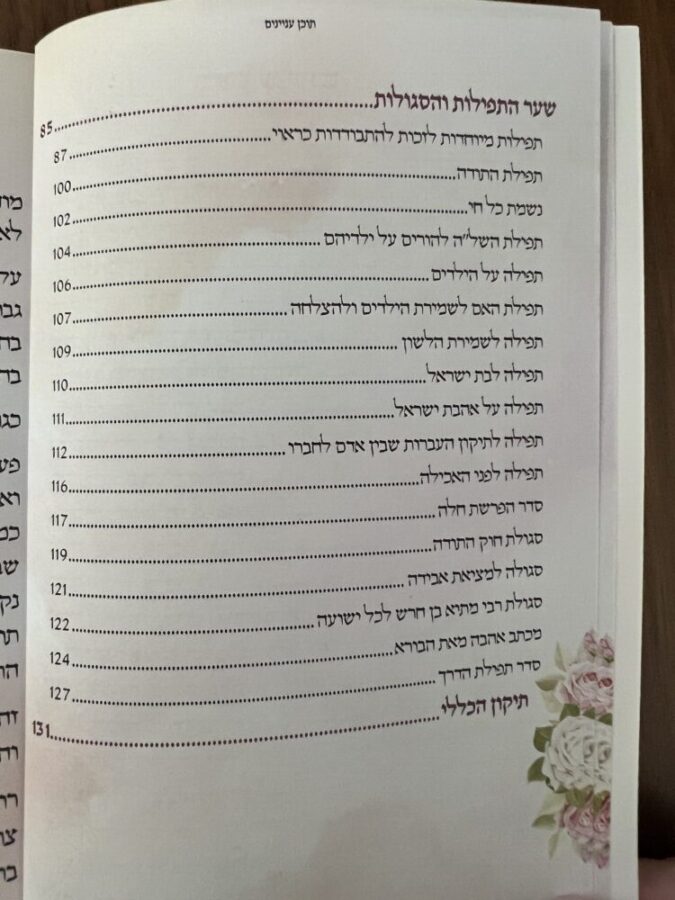 תוכן עניינים
שער התפילות והסגולות................85
תפילות מיוחדות לזכות להתבודדות כראוי................87
תפילת התודה................100
נשמת כל חי................102
תפילת השל"ה להורים על ילדיהם................104
תפילה על הילדים................106
תפילת האם לשמירת הילדים ולהצלחה................107
תפילה לשמירת הלשון................109
תפילה לבת ישראל................110
תפילה על אהבת ישראל................111
תפילה לתיקון העברות שבין אדם לחברו................112
תפילה לפני האכילה................116
סדר הפרשת חלה................117
סגולת חוק התודה................119
סגולה למציאת אבידה................121
סגולת רבי מתיא בן חרש לכל ישועה................122
מכתב אהבה מאת הבורא................124
סדר תפילת הדרך................127
תיקון הכללי................131